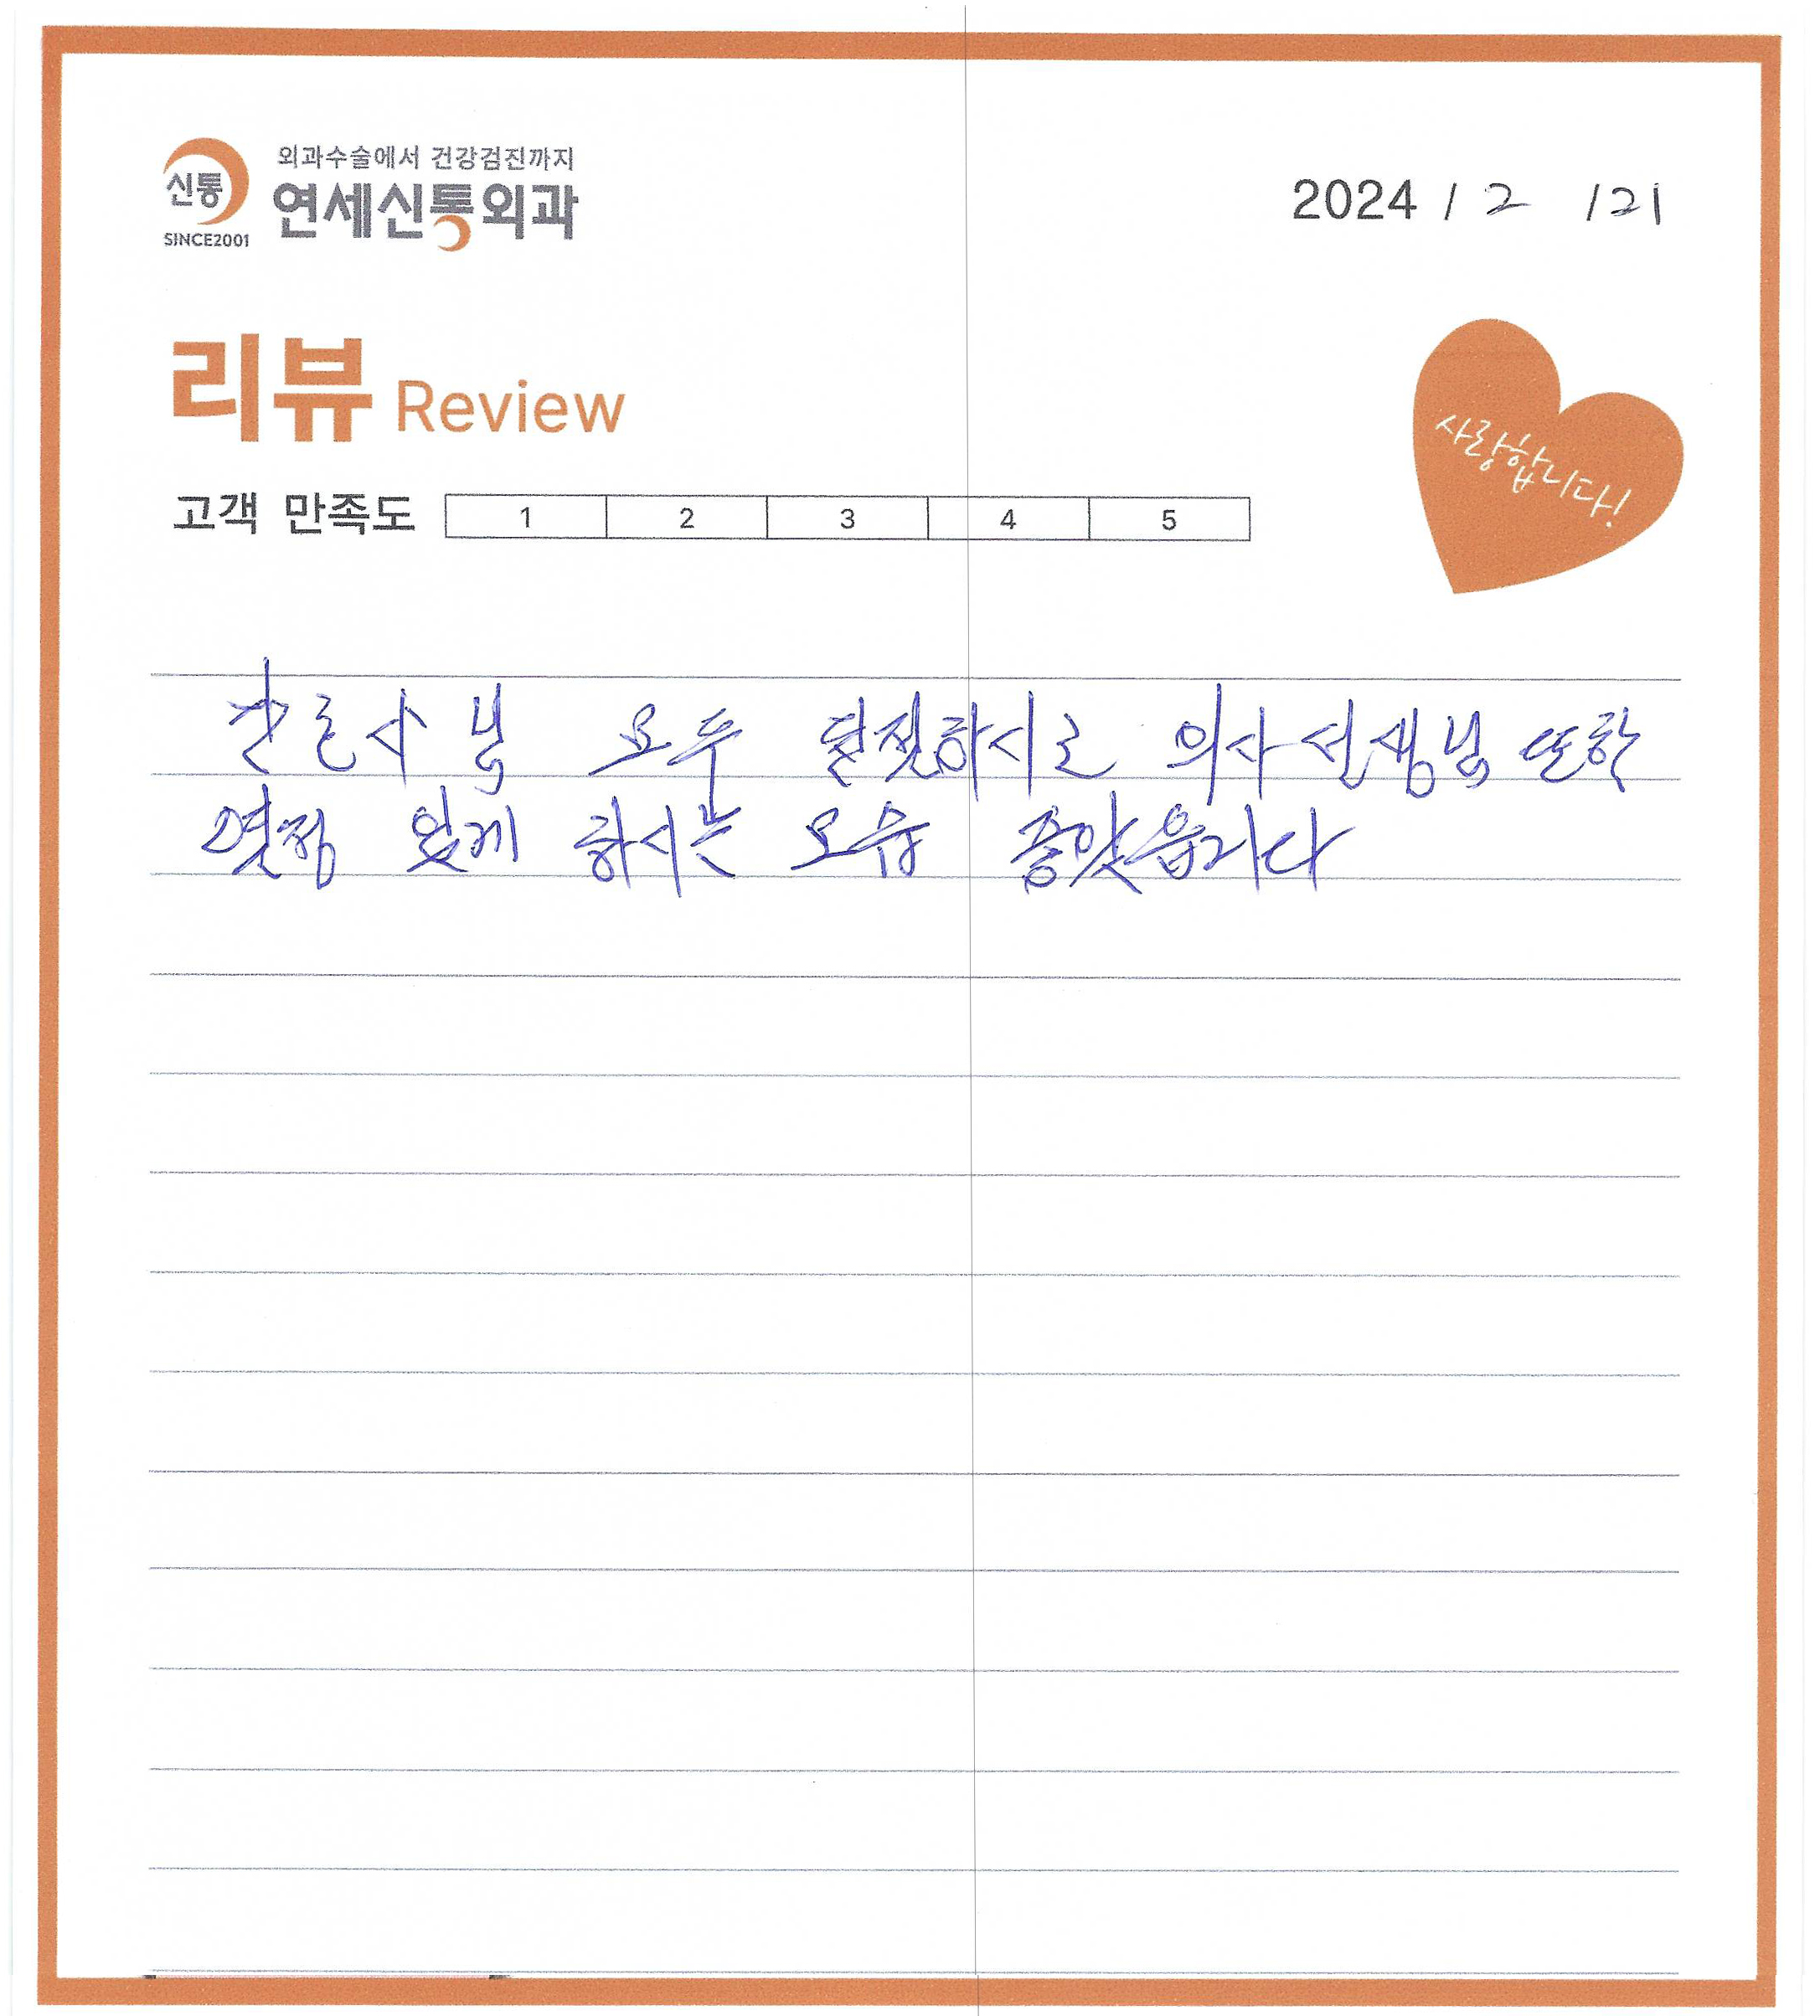 신통
SINCE2001
외과수술에서 건강검진까지
연세신통외과
2024 / 2 /21
리뷰 Review
사랑합니다!
고객 만족도 1 2 3 4 5
간호사 님 모두 하시고 의사선생님 또한
열정 있게 하시는 모습 좋았읍니다